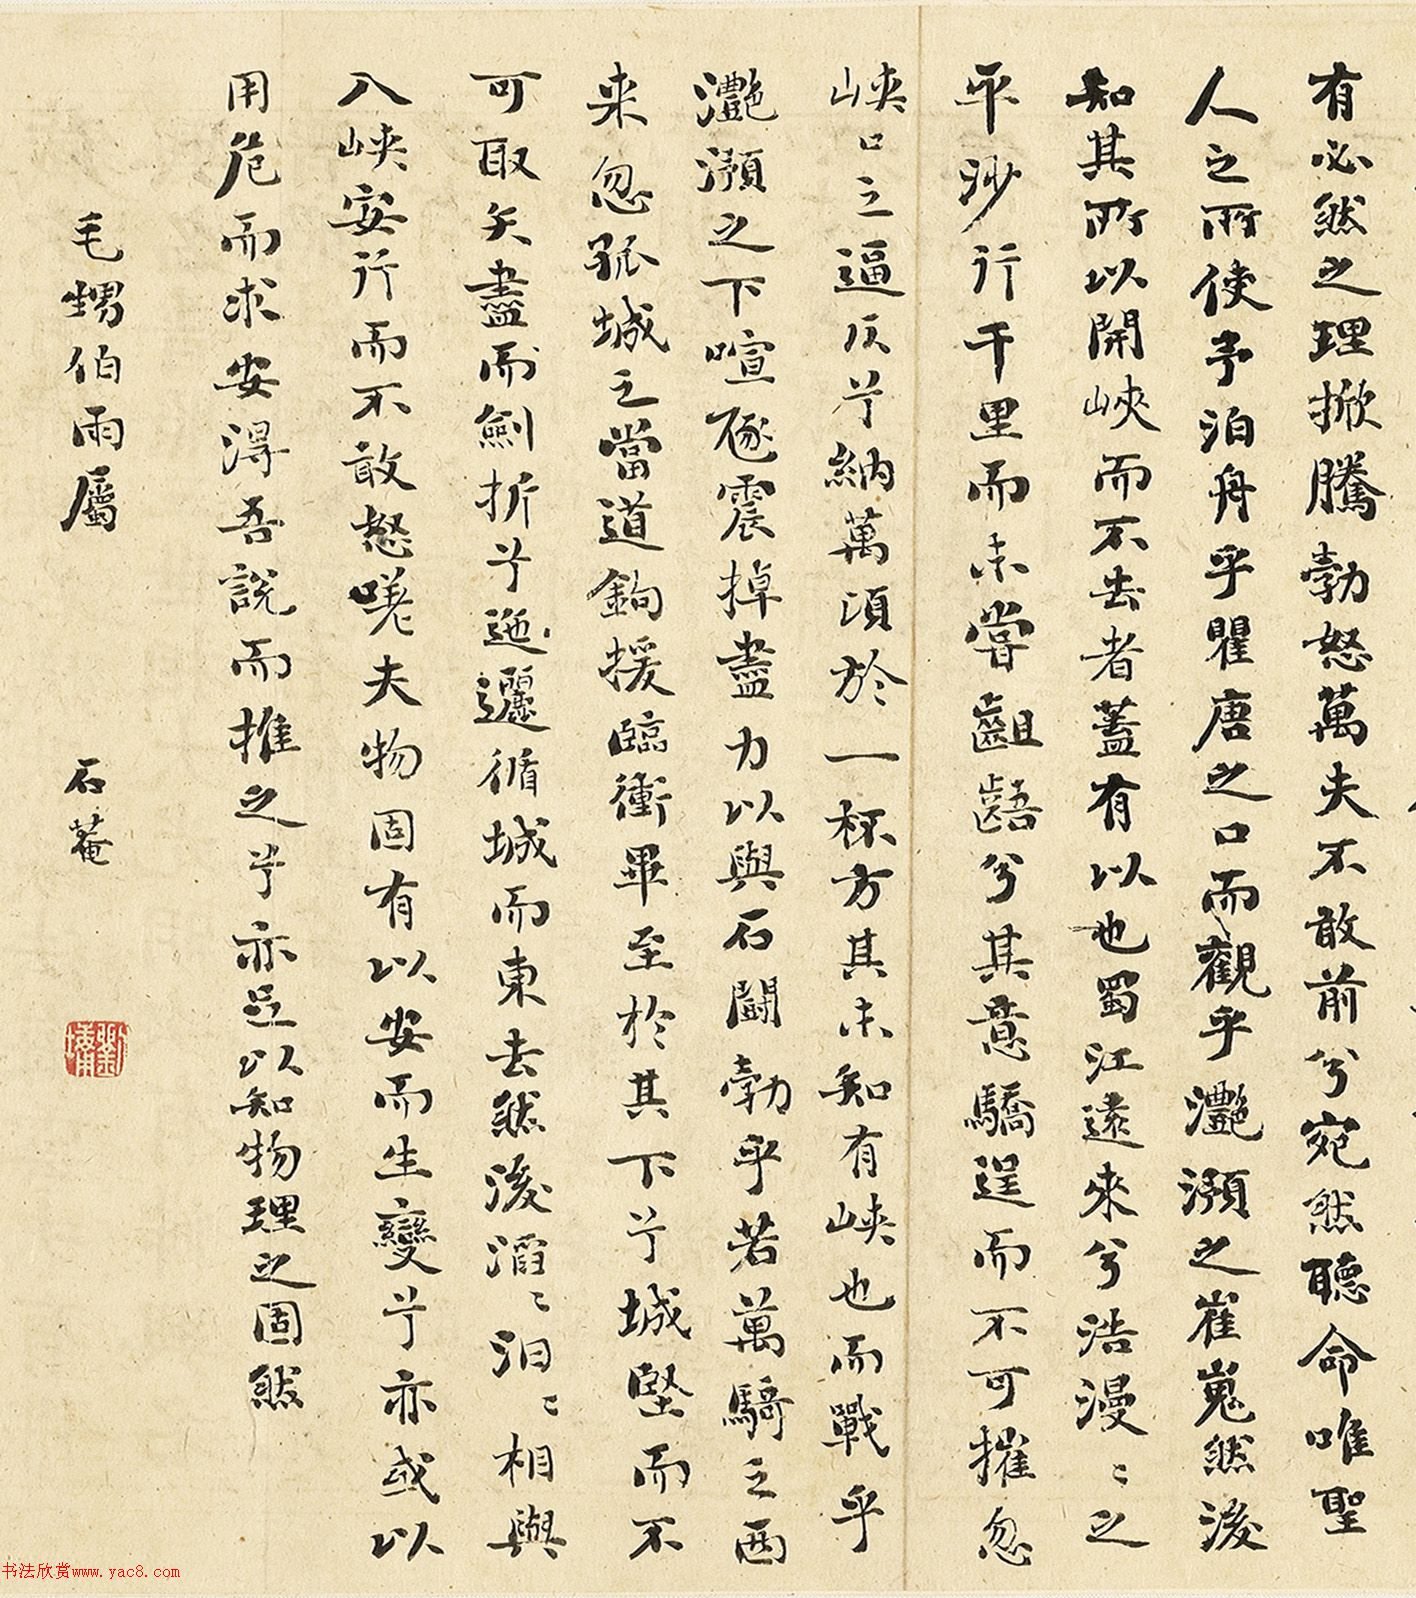 有必然之理掀騰勃怒萬夫不敢前兮宛然聽命唯聖
人之所使予泊舟乎瞿唐之口而觀乎灩澦之崔嵬然後
知其所以開峽而不去者蓋有以也蜀江遠來兮浩漫〻之
平沙行千里而未嘗齟齬兮其意驕逞而不可摧忽
峽口之逼仄兮納萬頃於一杯方其未知有峽也而戰乎
灩澦之下喧豗震掉盡力以與石鬭勃乎若萬騎之西
来忽孤城之當道鉤援臨衝畢至於其下兮城堅而不
可取矢盡而劍折兮迤邐循城而東去然後滔〻汩〻相與
入峽安行而不敢怒嗟夫物固有以安而生變兮亦或以
用危而求安得吾說而推之兮亦足以知物理之固然
毛甥伯雨屬 石菴
劉墉
书法欣赏www.yac8.com